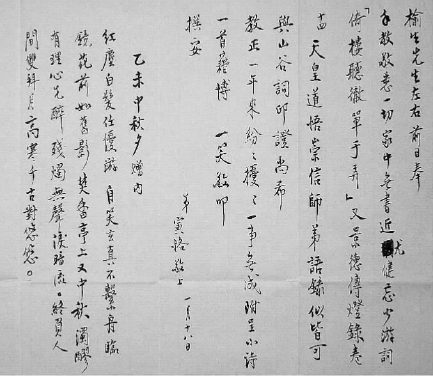 榆生先生左右前日奉
手教敬悉一切家中無書近尤健忘少游詞
「倚樓聽徹單于弄」又景德傳燈錄卷
十四天皇道悟崇信師弟語錄似皆可
與山谷詞印證尚希
教正一年來紛紛擾擾一事無成附呈小詩
一首藉博一笑敬叩
撰安
弟寅恪敬上 一月十八日
乙未中秋夕贈內
紅塵白髮任優游自笑玄真不繫舟臨
鏡花前如舊影焚香亭上又中秋濁醪
有理心先醉殘燭無聲淚暗流。終負人
間雙拜月高寒千古對悠悠。